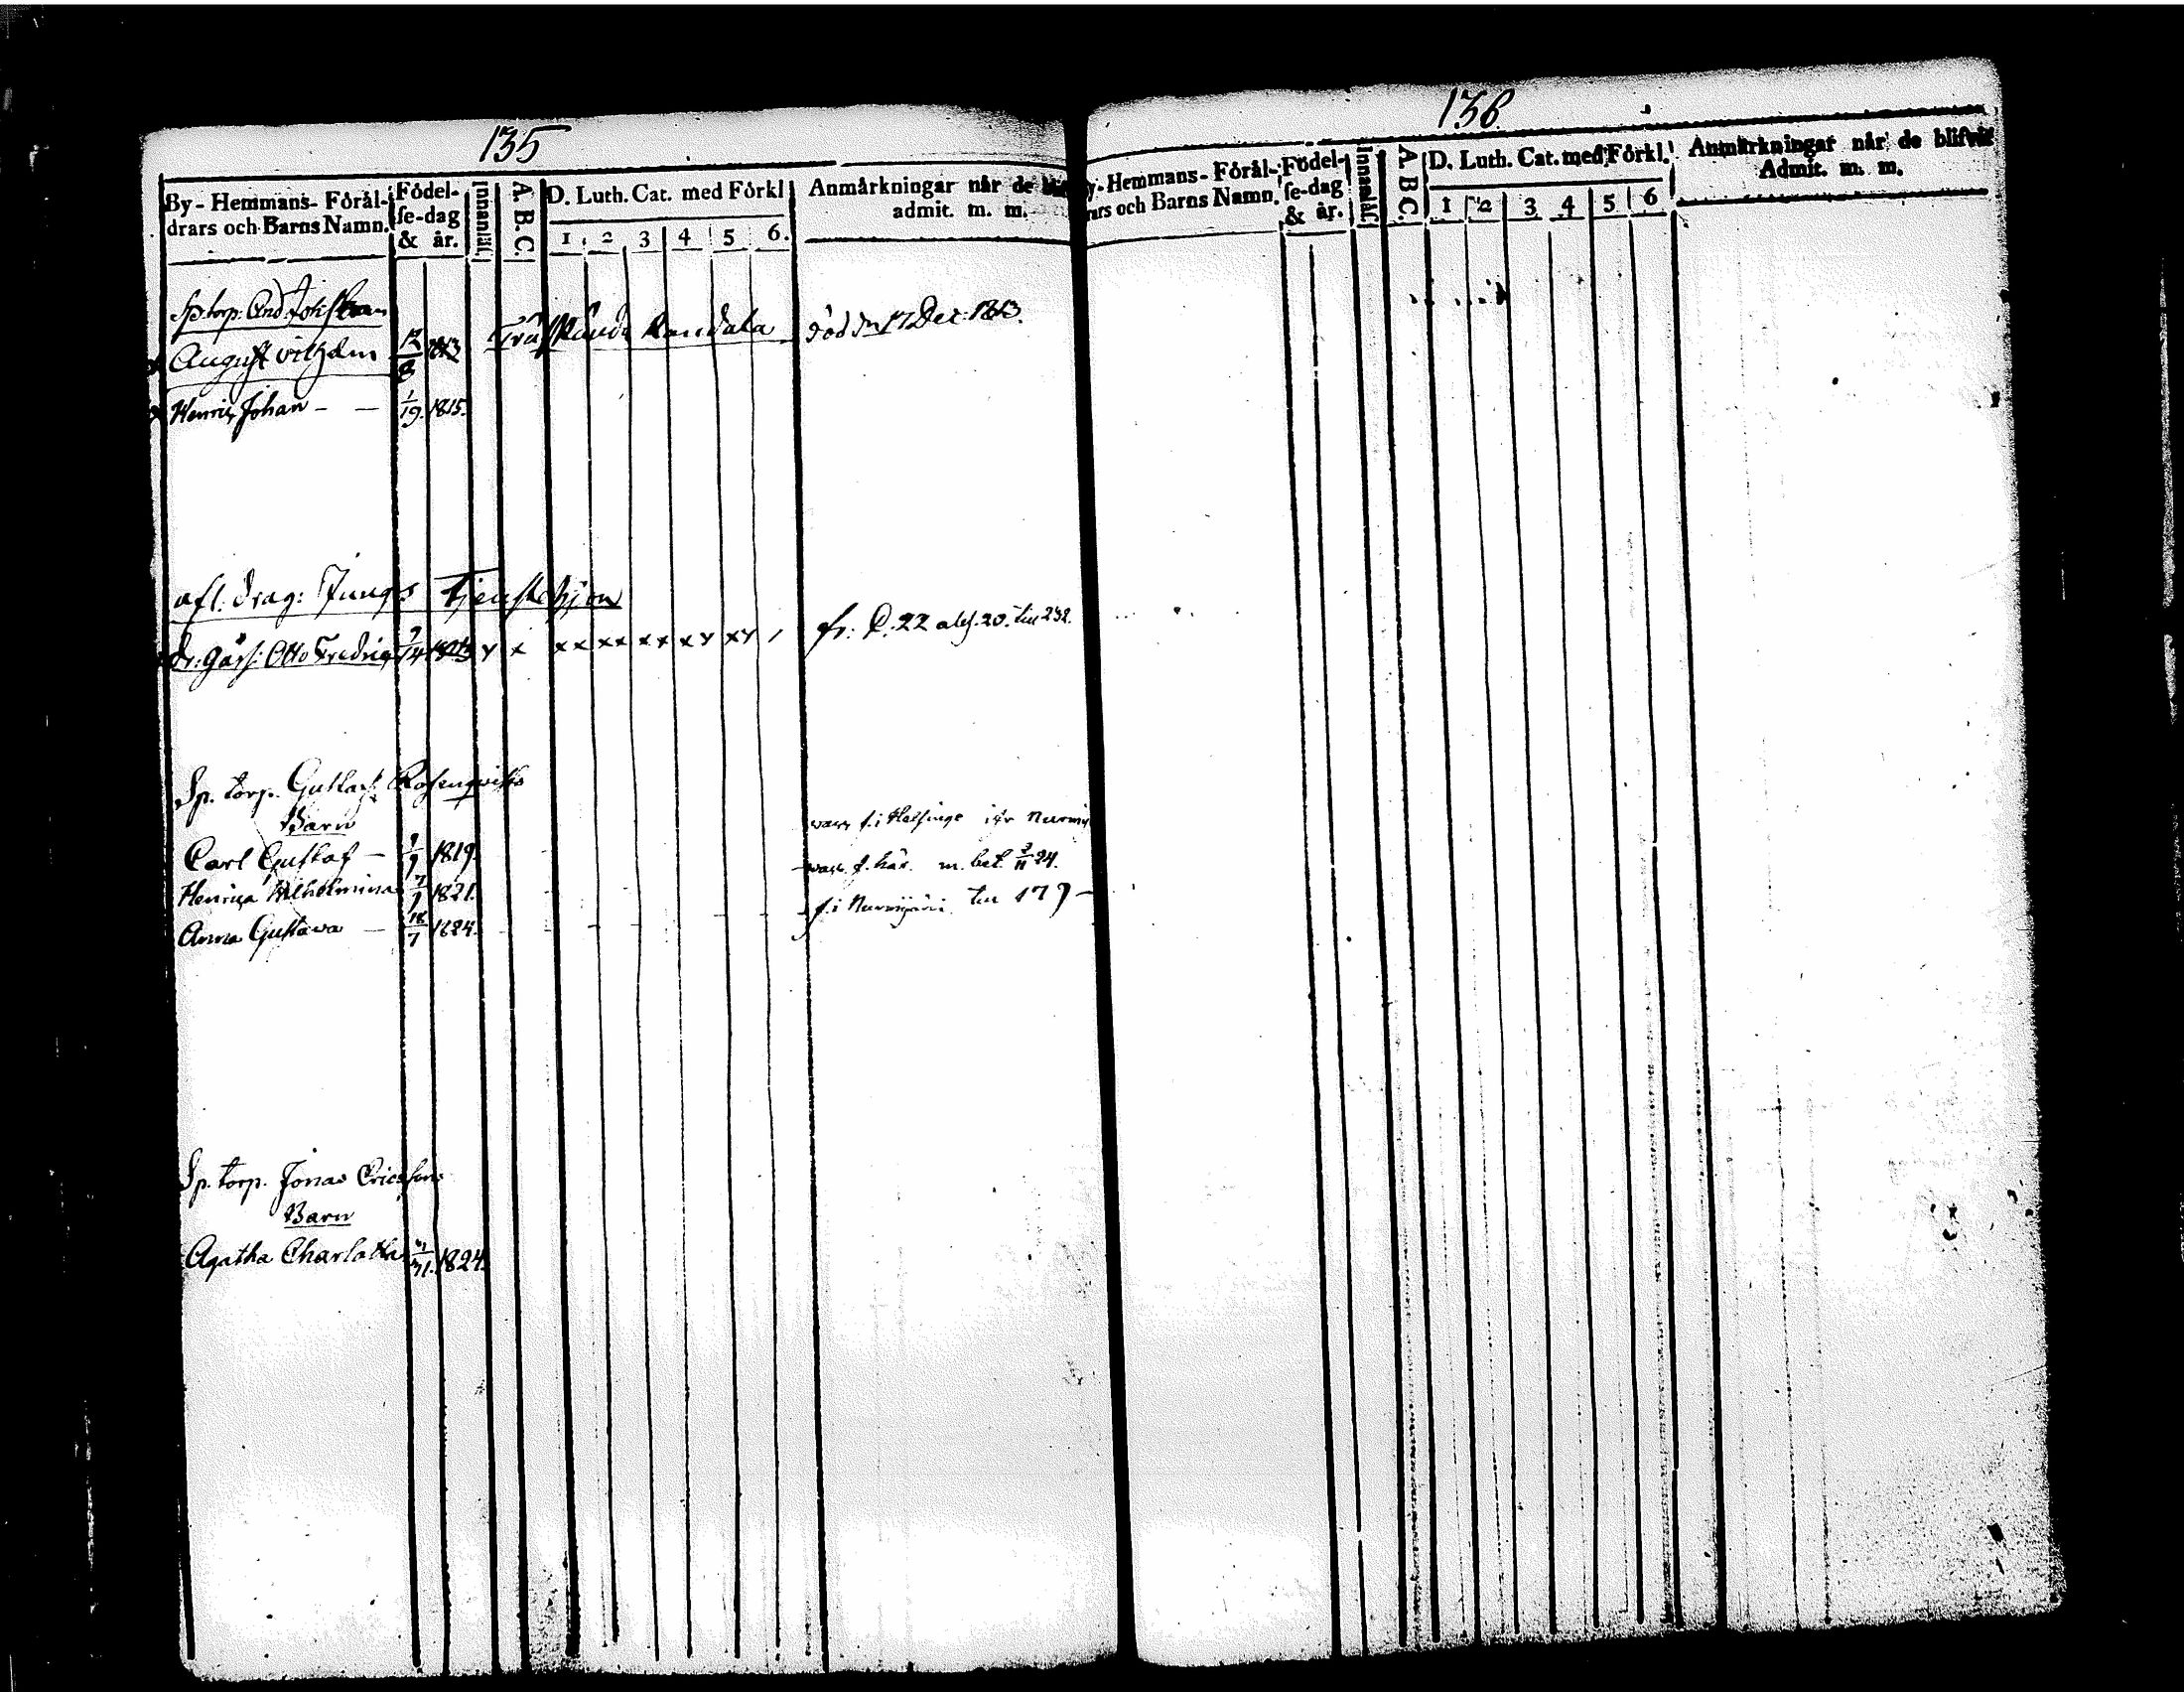 135
By-Hemmans-Föräl-
drars och Barns Namn.
Födel-
se-dag
& år.
Innanläs.
A. B. C.
D. Luth. Cat. med Förkl
1 2 3 4 5 6.
Anmärkningar när de
admit. m. m.
Sp. torp: And Johsson
August Vilhelm 12/8 1813 Träskända Randala död den 17 Dec: 1813.
Henric Johan - - 1/19. 1815.
afl: drag: Tjungs Tjenstehjon
dr: gåss: Otto Fredric 7/4 1813 x x xx xx xx xx xx / fr: P. 22 abs. 20. till 232.
Sp. torp. Gustaf Rosenqvists
Barn
Carl Gustaf - 1/9 1819. f. i Helsinge
Henrica Wilhelmina 7/9 1821. f. här. m. bet. 3/11 24.
Anna Gustava - 18/7 1824. f. i Nurmijärvi till 179 -
Sp. torp. Jonas Ericssons
Barn
Agatha Charlotta 1824.
136
By-Hemmans-Föräl-
drars och Barns Namn.
Födel-
se-dag
& år.
Innanläs.
A. B C.
D. Luth. Cat. med Förkl.
1 2 3 4 5 6
Anmärkningar när de blifvit
Admit. m. m.